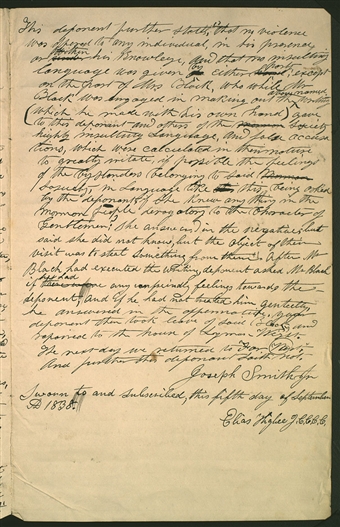 This deponent further states, that no violence
was offered to any individual, in his presence,
or within his knowledge, and that no insulting
language was given by either party, except
on the part of Mrs Black, who while Mr
Black was engaged in making out the
(which he made with his own hand) gave
to this deponent and others of the Society
highly insulting language, and false accusa
tions, which were calculated in their nature
to greatly irritate, if possible the feelings
of the bystanders belonging to said
Society, in language like this; being asked
by the deponent if she knew any thing in the
Mormon people derogatory to the character of
Gentlemen: she answered in the negative, but
said she did not know, but the object of their
visit was to steal something from them. After Mr
Black had executed the writing deponent asked Mr Black
if he had any unfriendly feelings towards the
deponent, and if he had not treated him genteelly
he answered in the affirmative,
deponent then took leave of said House and
repaired to the house of Lyman Wight.
The next day we returned to Far West,
And further this deponent saith not.
Joseph Smith Jr
Sworn to and subscribed, this fifth day of September
AD 1838.
Elias Higbee J.C.C.C.C.